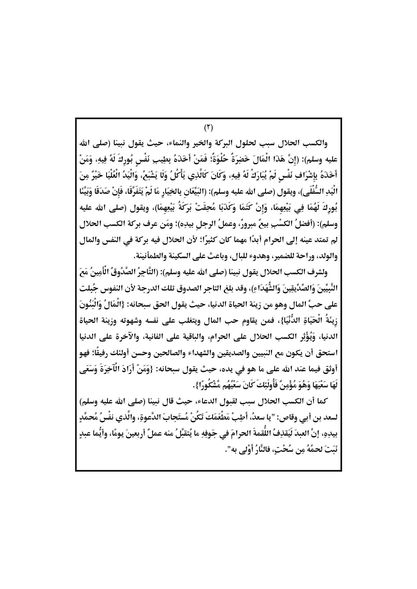 (٢)
والكسب الحلال سبب لحلول البركة والخير والنماء، حيث يقول نبينا (صلى الله
عليه وسلم): (إِنَّ هَذَا الْمَالَ خَضِرَةٌ حُلْوَةٌ؛ فَمَنْ أَخَذَهُ بِطِيبِ نَفْسٍ بُورِكَ لَهُ فِيهِ، وَمَنْ
أَخَذَهُ بِإِشْرَافِ نَفْسٍ لَمْ يُبَارَكْ لَهُ فِيهِ، وَكَانَ كَالَّذِي يَأْكُلُ وَلَا يَشْبَعُ، وَالْيَدُ الْعُلْيَا خَيْرٌ مِنَ
الْيَدِ السُّفْلَى)، ويقول (صلى الله عليه وسلم): (البَيِّعَانِ بِالخِيَارِ مَا لَمْ يَتَفَرَّقَا، فَإِنْ صَدَقَا وَبَيَّنَا
بُورِكَ لَهُمَا فِي بَيْعِهِمَا، وَإِنْ كَتَمَا وَكَذَبَا مُحِقَتْ بَرَكَةُ بَيْعِهِمَا)، ويقول (صلى الله عليه
وسلم): (أفضلُ الكسْبِ بيعٌ مبرورٌ، وعملُ الرجلِ بيدِهِ)؛ ومَن عرف بركة الكسب الحلال
لم تمتد عينه إلى الحرام أبدًا مهما كان كثيرًا؛ لأن الحلال فيه بركة في النفس والمال
والولد، وراحة للضمير، وهدوء للبال، وباعث على السكينة والطمأنينة.
ولشرف الكسب الحلال يقول نبينا (صلى الله عليه وسلم): (التَّاجِرُ الصَّدُوقُ الْأَمِينُ مَعَ
النَّبِيِّينَ وَالصِّدِّيقِينَ وَالشُّهَدَاءِ)، وقد بلغ التاجر الصدوق تلك الدرجة لأن النفوس جُبلت
على حبِّ المال وهو من زينة الحياة الدنيا، حيث يقول الحق سبحانه: {الْمَالُ وَالْبَنُونَ
زِينَةُ الْحَيَاةِ الدُّنْيَا}، فمن يقاوم حب المال ويتغلب على نفسه وشهوته وزينة الحياة
الدنيا، ويُؤْثِر الكسب الحلال على الحرام، والباقية على الفانية، والآخرة على الدنيا
استحق أن يكون مع النبيين والصديقين والشهداء والصالحين وحسن أولئك رفيقًا؛ فهو
أوثق فيما عند الله على ما هو في يده، حيث يقول سبحانه: {وَمَنْ أَرَادَ الْآخِرَةَ وَسَعَى
لَهَا سَعْيَهَا وَهُوَ مُؤْمِنٌ فَأُولَئِكَ كَانَ سَعْيُهُم مَّشْكُورًا}.
كما أن الكسب الحلال سبب لقبول الدعاء، حيث قال نبينا (صلى الله عليه وسلم)
لسعد بن أبي وقاص: "يا سعدُ، أَطِبْ مَطْعَمَكَ تَكُنْ مُستَجابَ الدَّعوةِ، والَّذي نفْسُ مُحمَّدٍ
بيدِهِ، إنَّ العبدَ لَيَقذِفُ اللُّقمةَ الحرامَ في جَوفِهِ ما يُتقبَّلُ منه عملُ أربعينَ يومًا، وأيُّما عبدٍ
نَبَتَ لحمُهُ مِن سُحْتٍ، فالنَّارُ أَوْلى به".